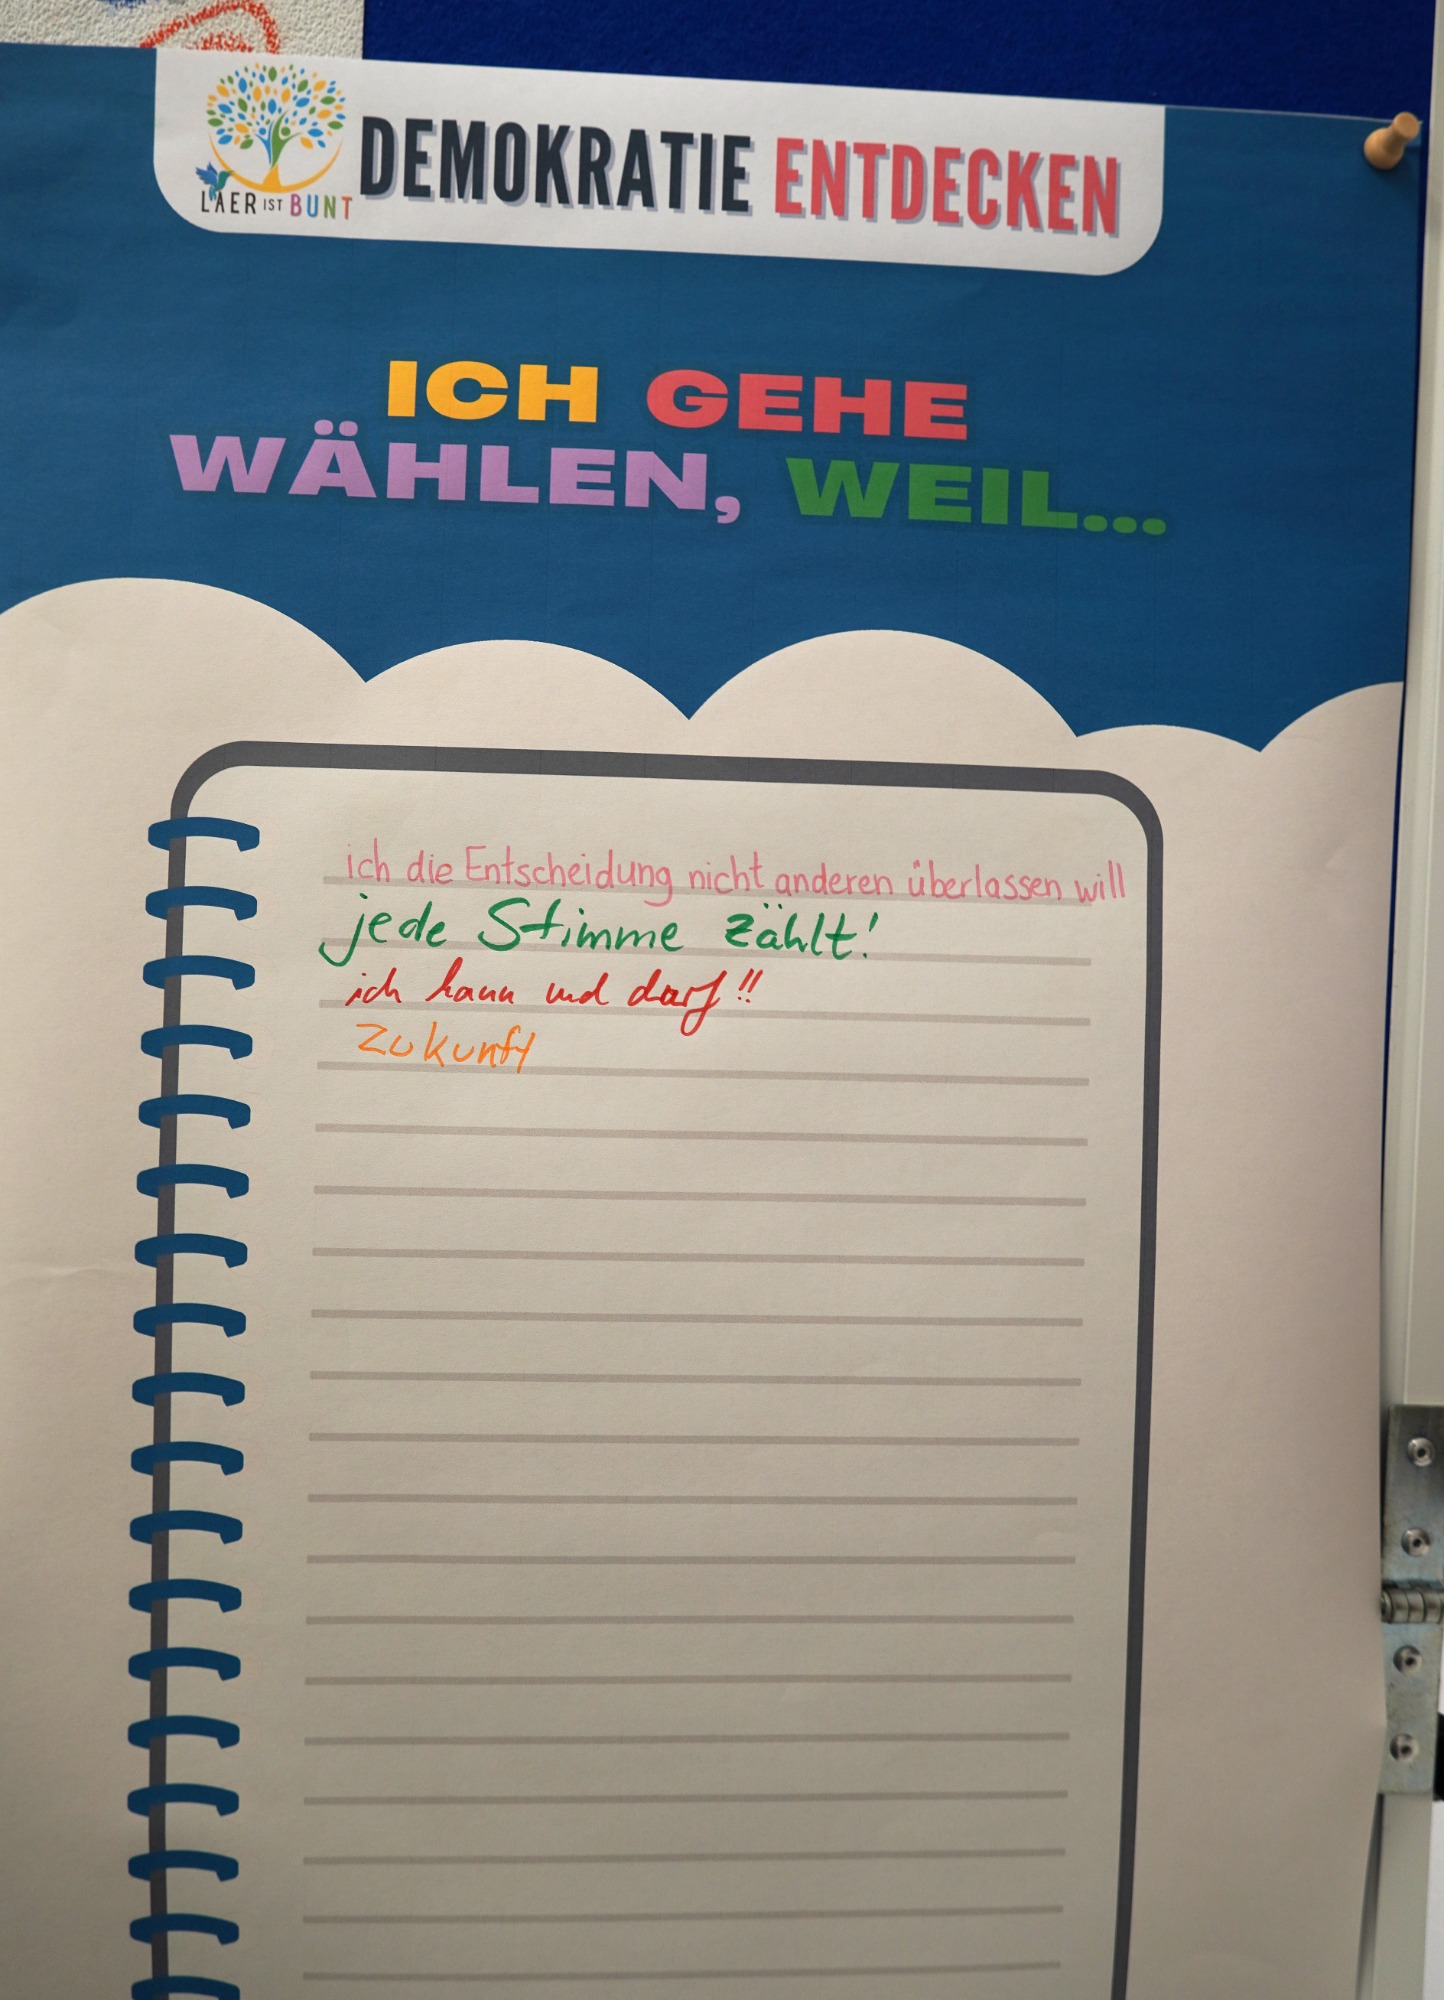 LAER IST BUNT
DEMOKRATIE ENTDECKEN
ICH GEHE
WÄHLEN, WEIL...
ich die Entscheidung nicht anderen überlassen will
jede Stimme zählt!
ich kann und darf!!
Zukunft